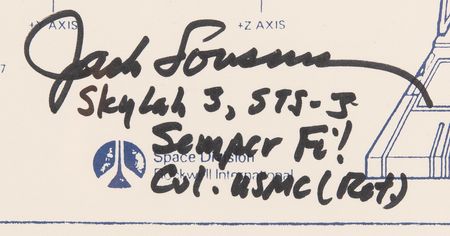 +Y AXIS
+Z AXIS
Jack Lousma
Skylab 3, STS-3
Semper Fi!
Space Division
Rockwell International
Col. USMC (Ret.)